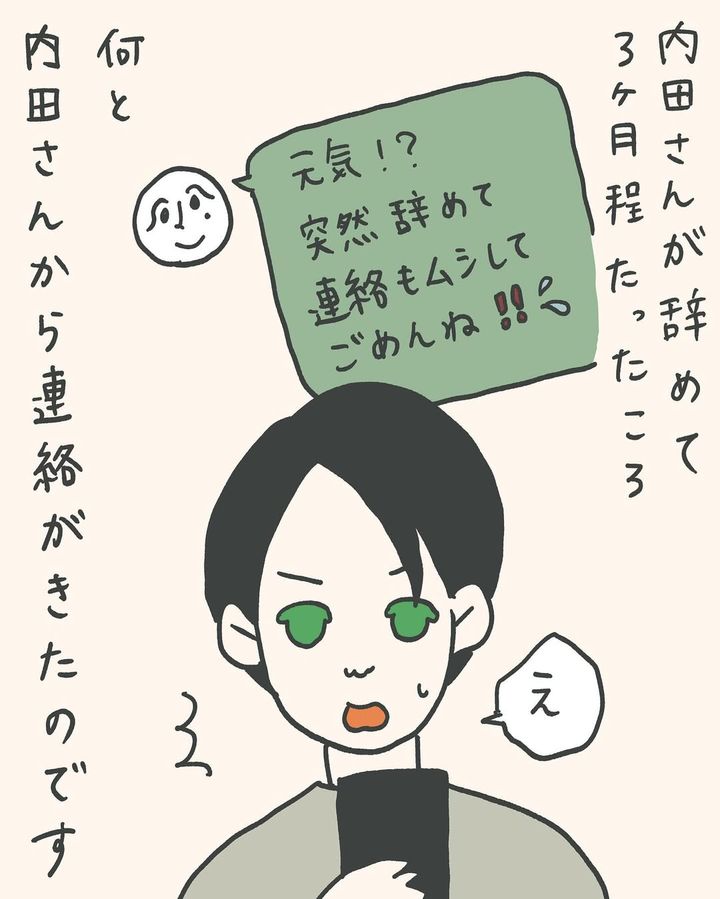 内田さんが辞めて
3ヶ月程たったころ
元気!?
突然辞めて
連絡もムシして
ごめんね!!
え
何と
内田さんから連絡がきたのです